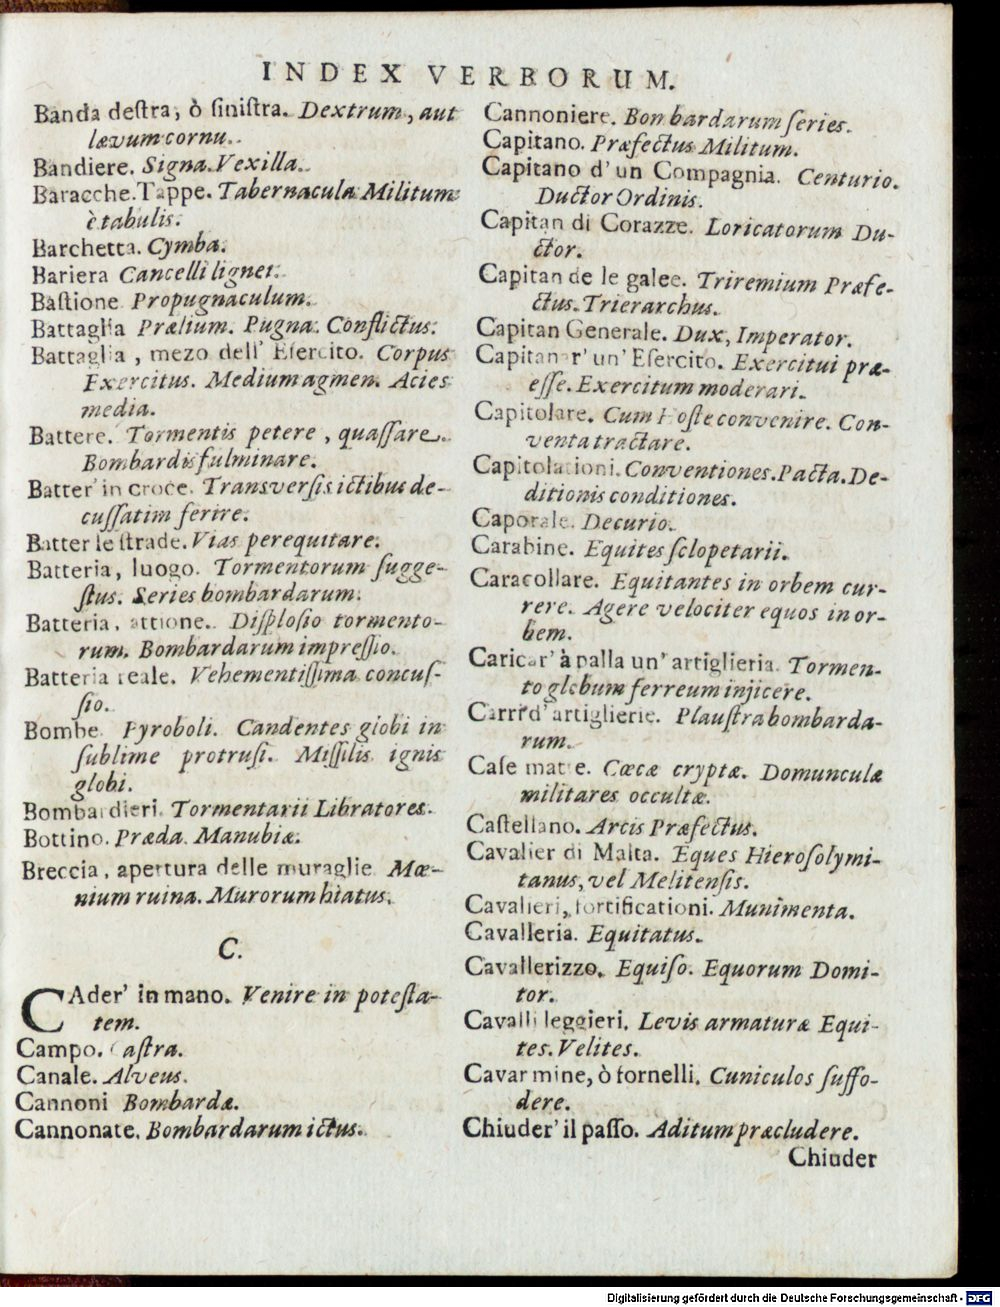 INDEX VERBORUM.
Banda destra, ò sinistra. Dextrum, aut
lævum cornu.
Bandiere. Signa. Vexilla.
Baracche. Tappe. Tabernacula Militum
è tabulis.
Barchetta. Cymba.
Bariera Cancelli lignei.
Bastione. Propugnaculum.
Battaglia Prælium. Pugna. Conflictus.
Battaglia, mezo dell' Esercito. Corpus
Exercitus. Medium agmen. Acies
media.
Battere. Tormentis petere, quassare.
Bombardis fulminare.
Batter' in croce. Transversis ictibus de-
cussatim ferire.
Batter le strade. Vias perequitare.
Batteria, luogo. Tormentorum sugge-
stus. Series bombardarum.
Batteria, attione. Displosio tormento-
rum. Bombardarum impressio.
Batteria reale. Vehementissima concus-
sio.
Bombe Pyroboli. Candentes globi in
sublime protrusi. Missilis ignis
globi.
Bombardieri. Tormentarii Libratores.
Bottino. Præda. Manubiæ.
Breccia, apertura delle muraglie. Mœ-
nium ruina. Murorum hiatus.
C.
CAder' in mano. Venire in potesta-
tem.
Campo. Castra.
Canale. Alveus.
Cannoni Bombardæ.
Cannonate. Bombardarum ictus.
Cannoniere. Bombardarum series.
Capitano. Præfectus Militum.
Capitano d' un Compagnia. Centurio.
Ductor Ordinis.
Capitan di Corazze. Loricatorum Du-
ctor.
Capitan de le galee. Triremium Præfe-
ctus. Trierarchus.
Capitan Generale. Dux, Imperator.
Capitanar' un' Esercito. Exercitui præ-
esse. Exercitum moderari.
Capitolare. Cum Hoste convenire. Con-
venta tractare.
Capitolationi. Conventiones. Pacta. De-
ditionis conditiones.
Caporale. Decurio.
Carabine. Equites sclopetarii.
Caracollare. Equitantes in orbem cur-
rere. Agere velociter equos in or-
bem.
Caricar' à palla un' artiglieria. Tormen-
to globum ferreum injicere.
Carri d' artiglierie. Plaustra bombarda-
rum.
Case matte. Cæcæ cryptæ. Domunculæ
militares occultæ.
Castellano. Arcis Præfectus.
Cavalier di Malta. Eques Hierosolymi-
tanus, vel Melitensis.
Cavalieri, fortificationi. Munimenta.
Cavalleria. Equitatus.
Cavallerizzo. Equiso. Equorum Domi-
tor.
Cavalli leggieri. Levis armaturæ Equi-
tes. Velites.
Cavar mine, ò fornelli. Cuniculos suffo-
dere.
Chiuder' il passo. Aditum præcludere.
Chiuder
Digitalisierung gefördert durch die Deutsche Forschungsgemeinschaft - DFG